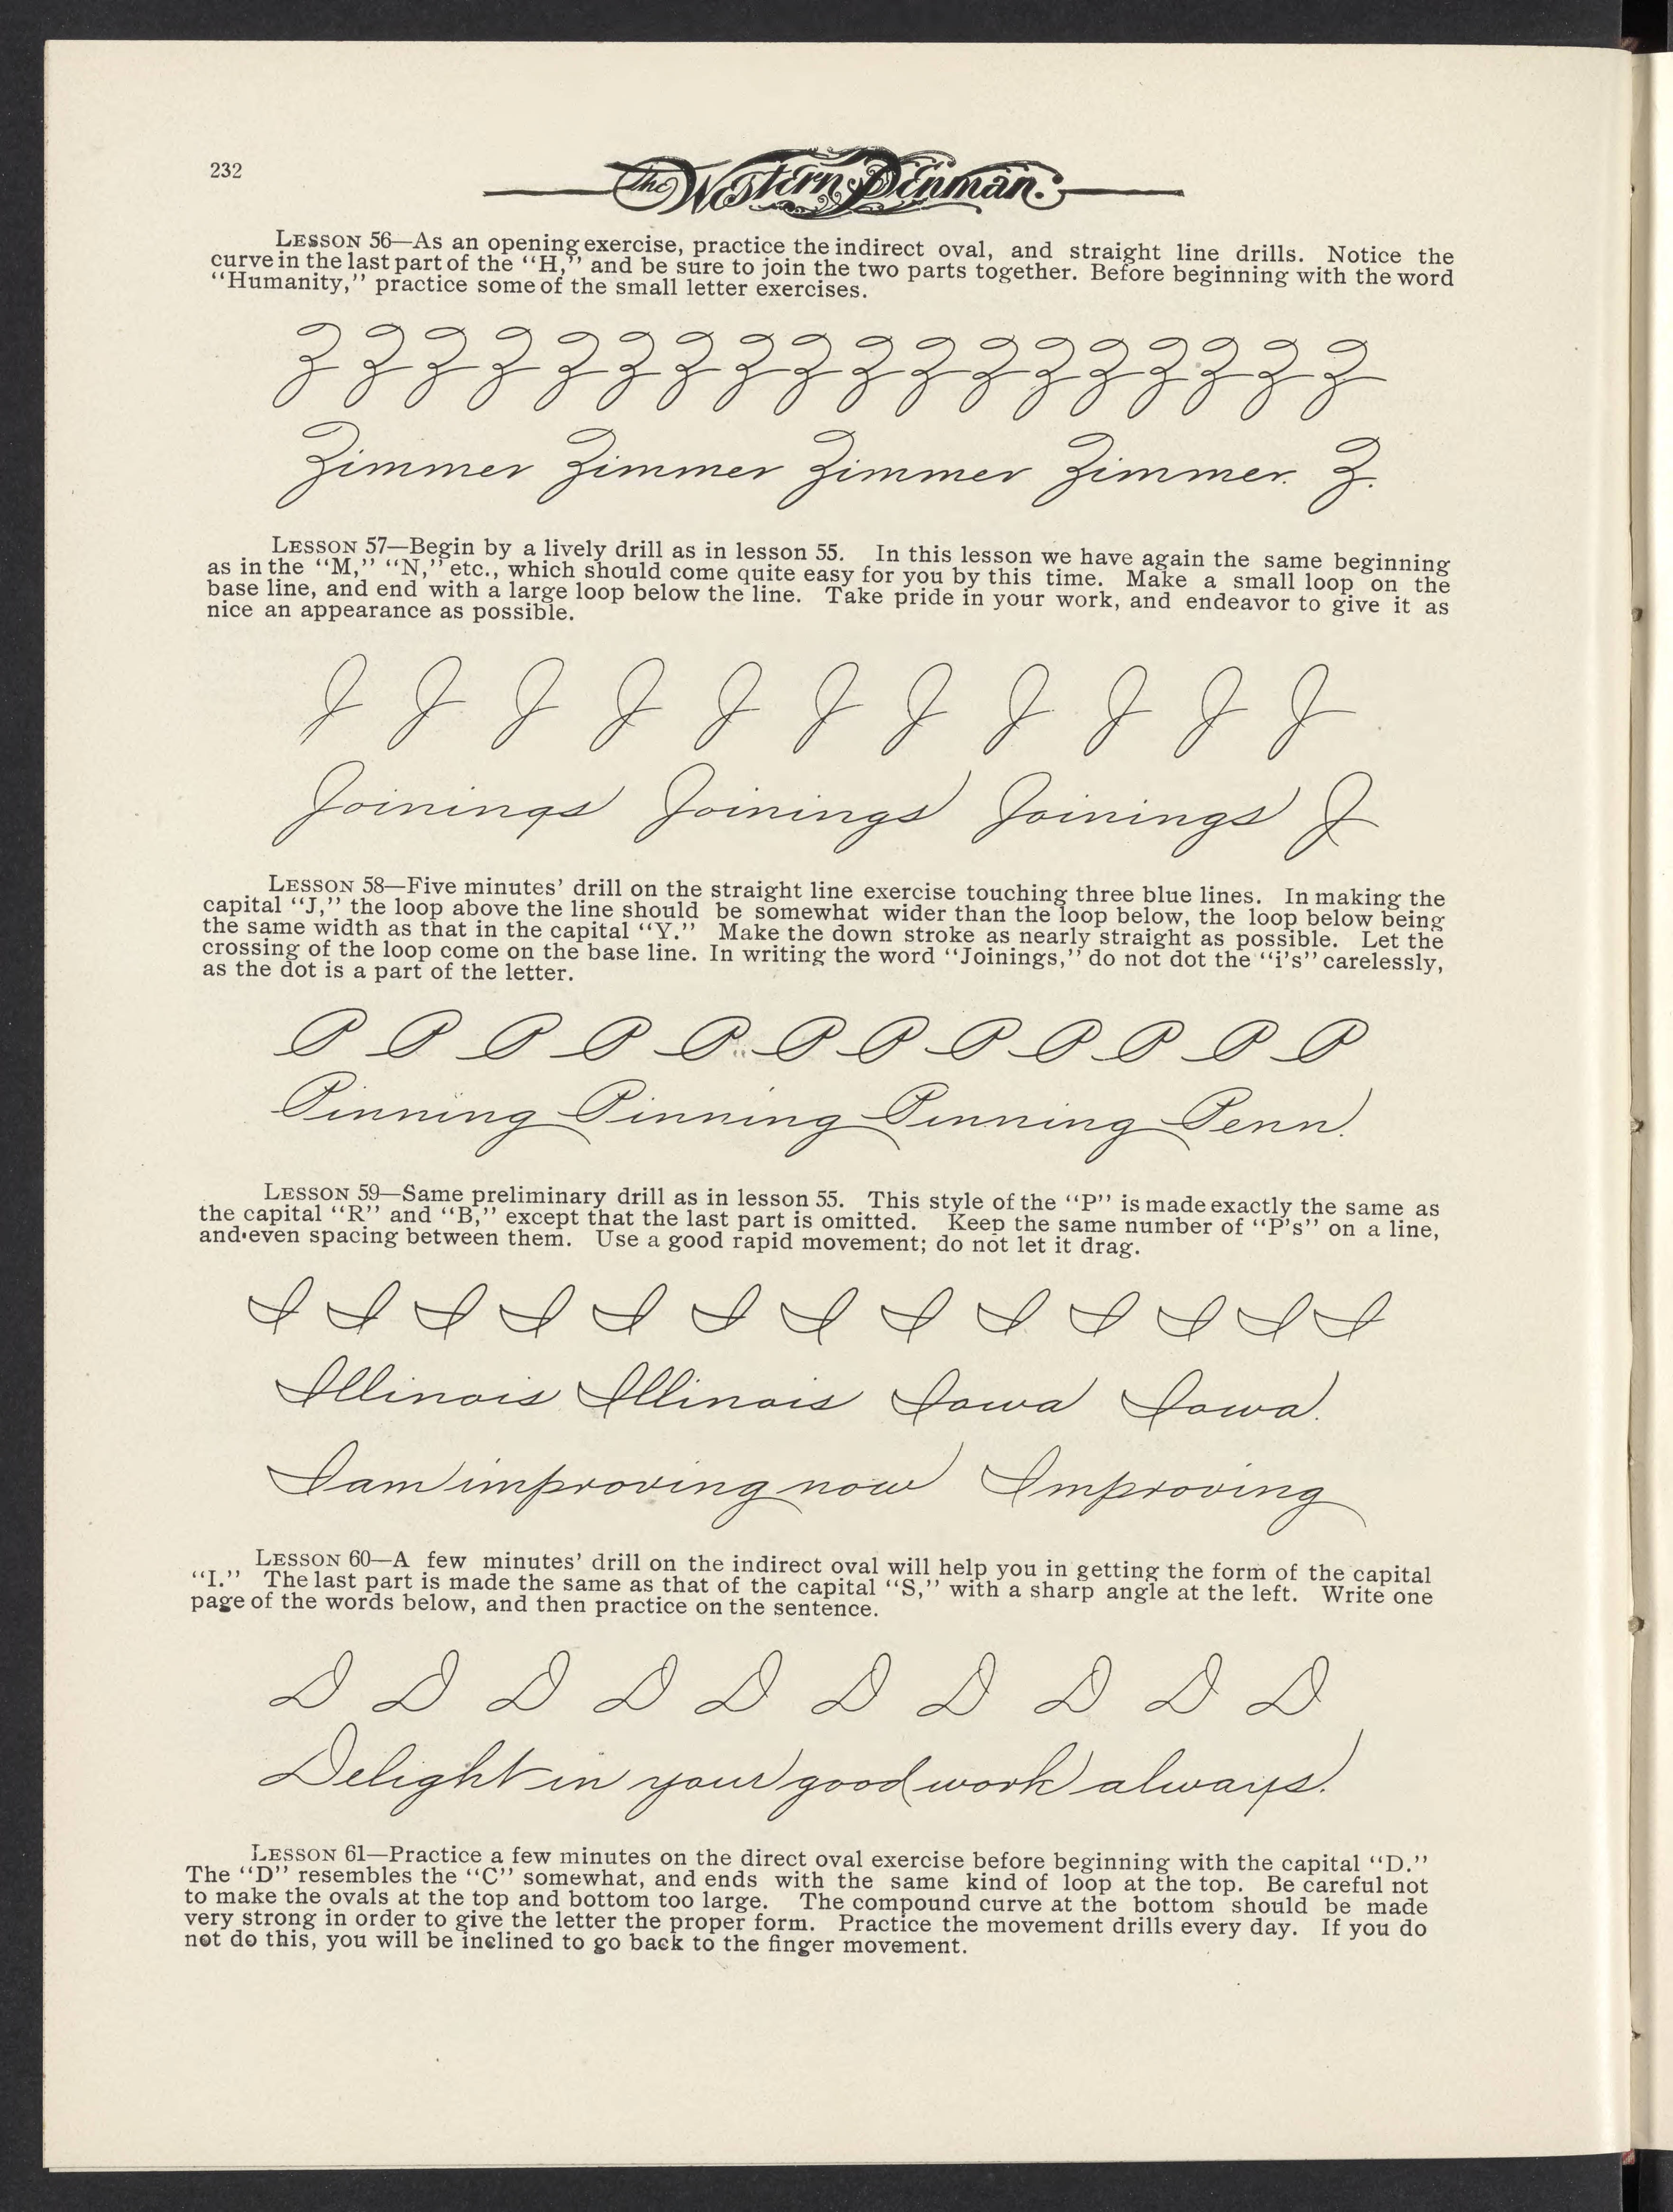 232
The Western Penman.
LESSON 56—As an opening exercise, practice the indirect oval, and straight line drills. Notice the
curve in the last part of the “H,” and be sure to join the two parts together. Before beginning with the word
“Humanity,” practice some of the small letter exercises.
Z Z Z Z Z Z Z Z Z Z Z Z Z Z Z Z Z Z
Zimmer Zimmer Zimmer Zimmer. Z.
LESSON 57—Begin by a lively drill as in lesson 55. In this lesson we have again the same beginning
as in the “M,” “N,” etc., which should come quite easy for you by this time. Make a small loop on the
base line, and end with a large loop below the line. Take pride in your work, and endeavor to give it as
nice an appearance as possible.
J J J J J J J J J J J
Joinings Joinings Joinings J
LESSON 58—Five minutes’ drill on the straight line exercise touching three blue lines. In making the
capital “J,” the loop above the line should be somewhat wider than the loop below, the loop below being
the same width as that in the capital “Y.” Make the down stroke as nearly straight as possible. Let the
crossing of the loop come on the base line. In writing the word “Joinings,” do not dot the “i’s” carelessly,
as the dot is a part of the letter.
P P P P P P P P P P P P
Pinning Pinning Pinning Penn.
LESSON 59—Same preliminary drill as in lesson 55. This style of the “P” is made exactly the same as
the capital “R” and “B,” except that the last part is omitted. Keep the same number of “P’s” on a line,
and even spacing between them. Use a good rapid movement; do not let it drag.
I I I I I I I I I I I I I
Illinois Illinois Iowa Iowa.
I am improving now Improving
LESSON 60—A few minutes’ drill on the indirect oval will help you in getting the form of the capital
“I.” The last part is made the same as that of the capital “S,” with a sharp angle at the left. Write one
page of the words below, and then practice on the sentence.
D D D D D D D D D D
Delight in your good work always.
LESSON 61—Practice a few minutes on the direct oval exercise before beginning with the capital “D.”
The “D” resembles the “C” somewhat, and ends with the same kind of loop at the top. Be careful not
to make the ovals at the top and bottom too large. The compound curve at the bottom should be made
very strong in order to give the letter the proper form. Practice the movement drills every day. If you do
not do this, you will be inclined to go back to the finger movement.